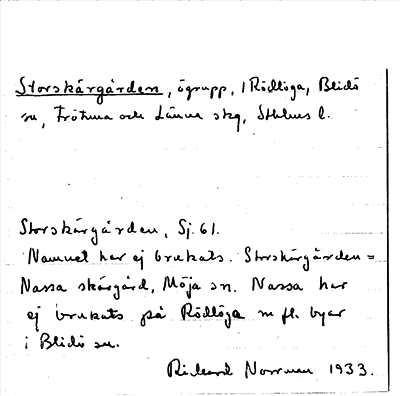 Storskärgården, ögrupp, i Rödlöga, Blidö
sn, Frötuna och Länna skg, Sthlms l.
Storskärgården, Sj. 61.
Namnet har ej brukats. Storskärgården =
Nassa skärgård, Möja sn. Nassa har
ej brukats på Rödlöga m fl. byar
i Blidö sn.
Rickard Norrman 1933.